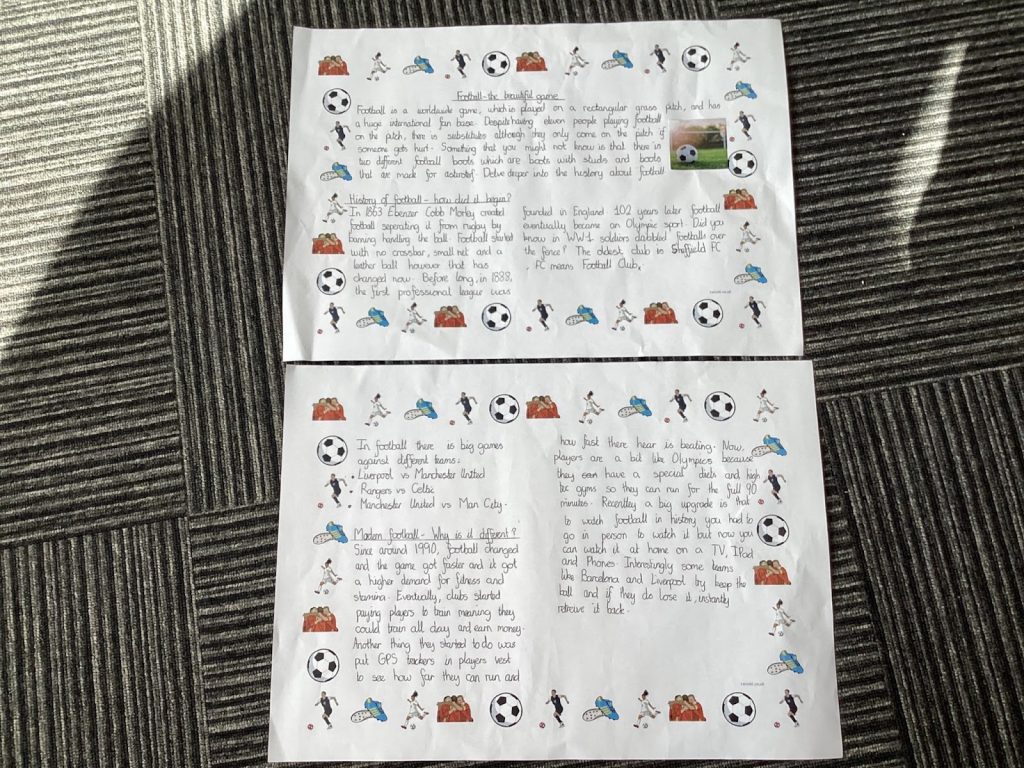 Football - the beautiful game
Football is a worldwide game, which is played on a rectangular grass pitch, and has
a huge international fan base. Despite having eleven people playing football
on the pitch, there is substitutes although they only come on the pitch if
someone gets hurt. Something that you might not know is that there is
two different football boots which are boots with studs and boots
that are made for . Delve deeper into the history about football
History of football - how did it began?
In 1863 Ebenzer Cobb Morley created
football seperating it from rugby by
baning handling the ball. Football started
with no crossbar, small net and a
leather ball however that has
changed now. Before long, in 1888,
the first professional league was
founded in England 102 years later football
eventually became an Olympic sport. Did you
know in WW1 soldiers dabbled footballs over
the fence? The oldest club is Sheffield FC
, FC means Football Club.
twinkl.co.uk
In football there is big games
against different teams:
• Liverpool vs Manchester United
• Rangers vs Celtic
• Manchester United vs Man City.
Modern football - Why is it different?
Since around 1990, football changed
and the game got faster and it got
a higher demand for fitness and
stamina. Eventually, clubs started
paying players to train meaning they
could train all day and earn money.
Another thing they started to do was
put GPS trackers in players vest
to see how far they can run and
how fast there hear is beating. Now,
players are a bit like Olympics because
they have a special diets and high
tec gyms so they can run for the full 90
minutes. Recentley a big upgrade is that
to watch football in history you had to
go in person to watch it but now you
can watch it at home on a TV, IPad
and Phones. Interestingly some teams
like Barcelona and Liverpool try keep the
ball and if they do lose it, instantly
retreive it back.
twinkl.co.uk